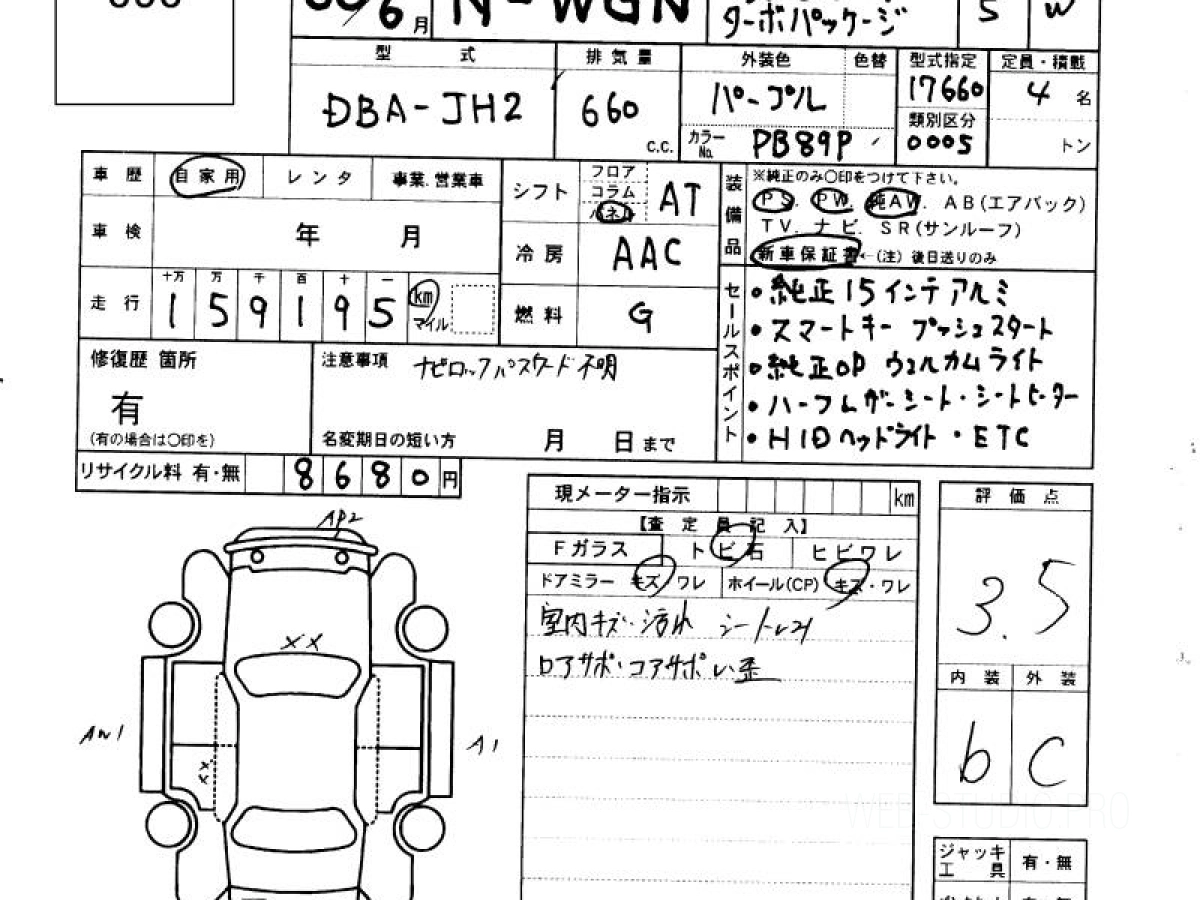 6月 N-WGN ターボパッケージ 5 W
型 式 排 気 量 外装色 色替 型式指定 定員・積載
DBA-JH2 660 c.c. パープル 17660 4 名
類別区分
カラーNo. PB89P 0005 トン
車 歴 自 家 用 レ ン タ 事業.営業車
シフト フロア コラム パネル AT
車 検 年 月
冷 房 AAC
走 行 十万 万 千 百 十 一
1 5 9 1 9 5 km マイル
燃 料 G
装備品 ※純正のみ〇印をつけて下さい。
PS. PW. 純AW. AB(エアバック)
TV. ナビ. SR(サンルーフ)
新車保証書←(注) 後日送りのみ
セールスポイント
・純正15インテアルミ
・スマートキー プッシュスタート
・純正OP ウェルカムライト
・ハーフレザーシート・シートヒーター
・HIDヘッドライト・ETC
修復歴 箇所
有
(有の場合は〇印を)
注意事項 ナビロックパスワード不明
名変期日の短い方 月 日まで
リサイクル料 有・無 8 6 8 0 円
現メーター指示 km
【査 定 員 記 入】
Fガラス ト ビ 石 ヒビワレ
ドアミラー キズ/ワレ ホイール(CP) キズ・ワレ
室内キズ・汚れ シート
ロアサポ・コアサポ 歪
評 価 点
3.5
内 装 外 装
b C
AP2
XX
AW1
XX
A1
ジャッキ 有・無
工 具
WEB-STUDIO.PRO